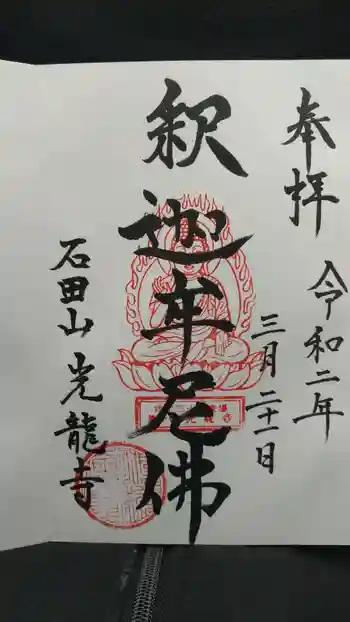 奉拝
令和二年
三月二十一日
釈迦牟尼佛
石田山光龍寺